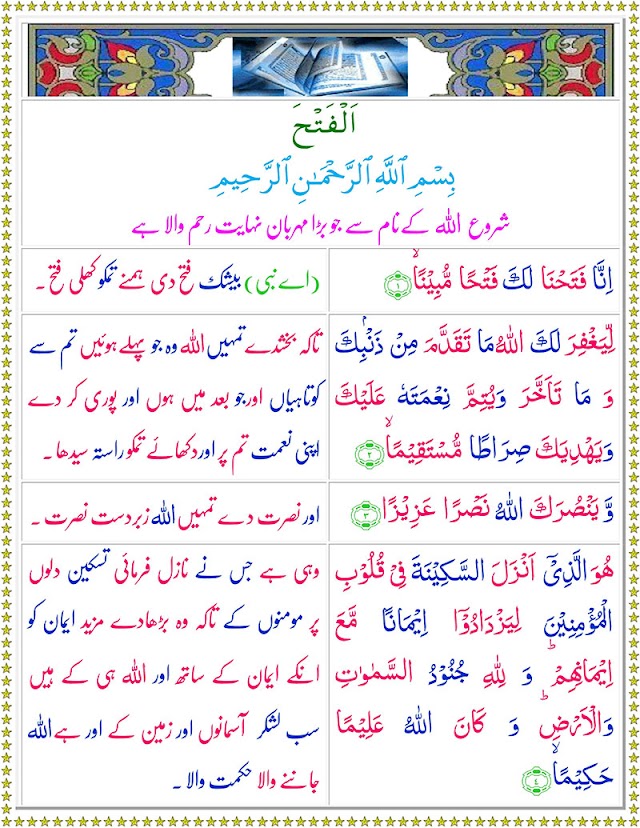 اَلْفَتْحَ
بِسْمِ ٱللَّهِ ٱلرَّحْمَـٰنِ ٱلرَّحِيمِ
شروع اللہ کے نام سے جو بڑا مہربان نہایت رحم والا ہے
اِنَّا فَتَحْنَا لَكَ فَتْحًا مُّبِيْنًا ۙ ﴿۱﴾
(اے نبی) بیشک فتح دی ہمنے تمکو کھلی فتح۔
لِّيَغْفِرَ لَكَ اللّٰهُ مَا تَقَدَّمَ مِنْ ذَنْۢبِكَ
وَ مَا تَاَخَّرَ وَيُتِمَّ نِعْمَتَهٗ عَلَيْكَ
وَيَهْدِيَكَ صِرَاطًا مُّسْتَقِيْمًا ۙ ﴿۲﴾
تاکہ بخشدے تمہیں اللہ وہ جو پہلے ہوئیں تم سے
کوتاہیاں اور جو بعد میں ہوں اور پوری کر دے
اپنی نعمت تم پر اور دکھائے تمکو راستہ سیدھا۔
وَّ يَنْصُرَكَ اللّٰهُ نَصْرًا عَزِيْزًا ﴿۳﴾
اور نصرت دے تمہیں اللہ زبردست نصرت۔
هُوَ الَّذِىْۤ اَنْزَلَ السَّكِيْنَةَ فِىْ قُلُوْبِ
الْمُؤْمِنِيْنَ لِيَزْدَادُوْۤا اِيْمَانًا مَّعَ
اِيْمَانِهِمْ ؕ وَ لِلّٰهِ جُنُوْدُ السَّمٰوٰتِ
وَالْاَرْضِ ؕ وَ كَانَ اللّٰهُ عَلِيْمًا
حَكِيْمًا ۙ ﴿۴﴾
وہی ہے جس نے نازل فرمائی تسکین دلوں
پر مومنوں کے تاکہ وہ بڑھادے مزید ایمان کو
انکے ایمان کے ساتھ اور اللہ ہی کے ہیں
سب لشکر آسمانوں اور زمین کے اور ہے اللہ
جاننے والا حکمت والا۔